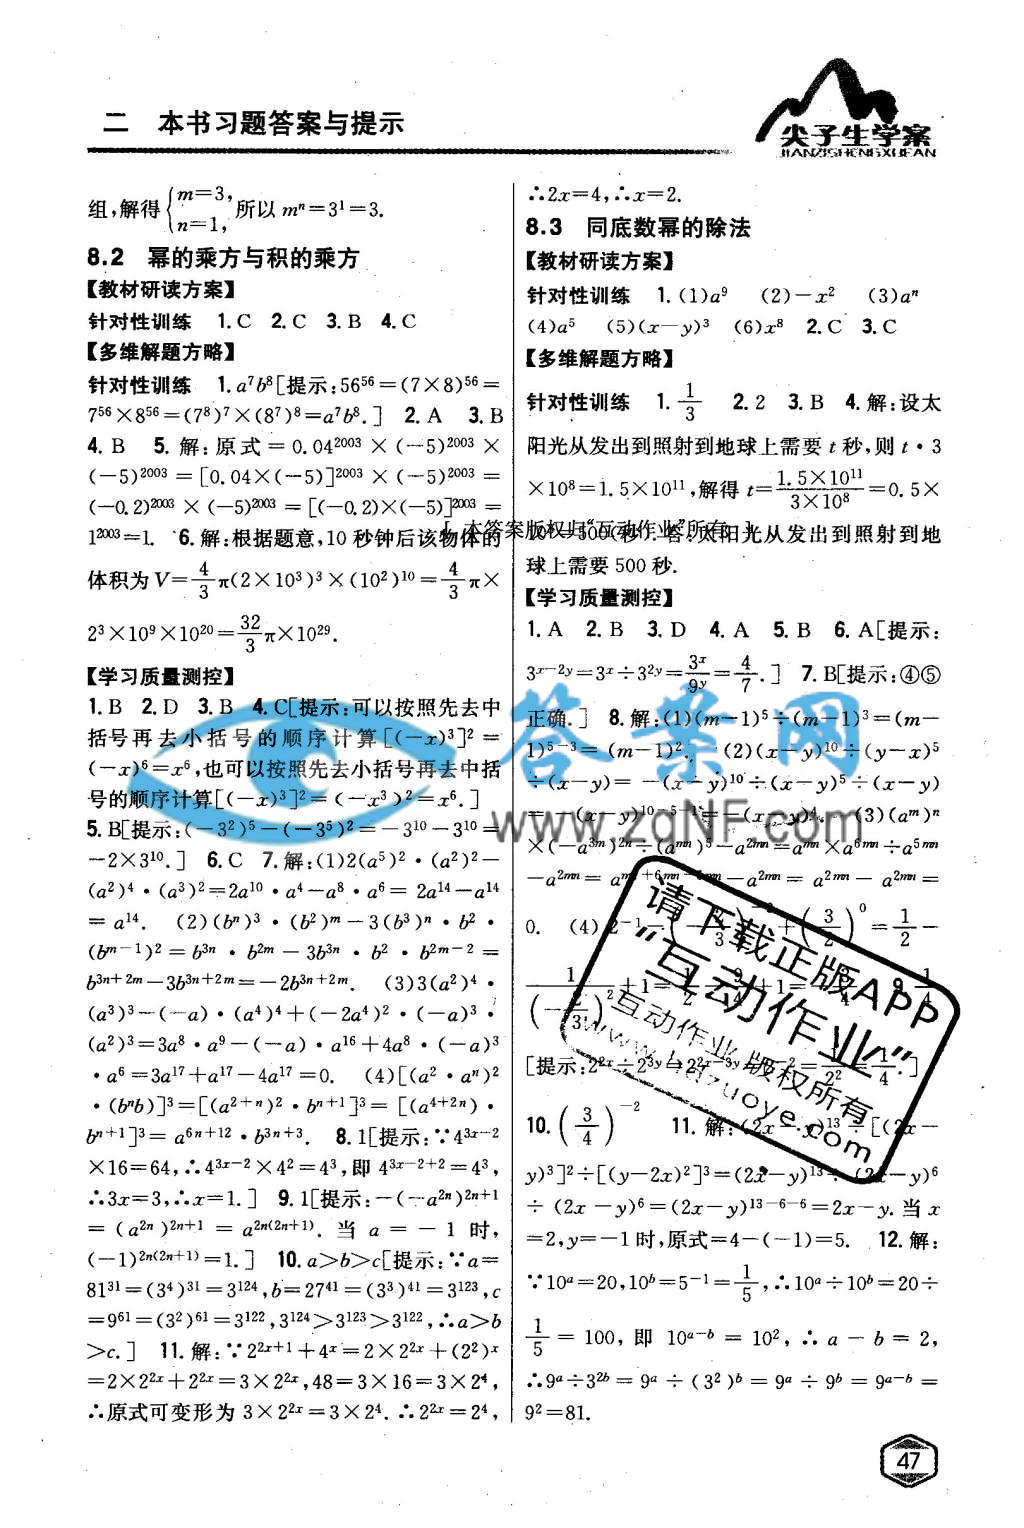 二 本书习题答案与提示
尖子生学案
JIANZISHENGXUEAN
组,解得{m=3, n=1, 所以 mⁿ=3¹=3.
8.2 幂的乘方与积的乘方
【教材研读方案】
针对性训练 1.C 2.C 3.B 4.C
【多维解题方略】
针对性训练 1.a⁷b⁸[提示:56⁵⁶=(7×8)⁵⁶=
7⁵⁶×8⁵⁶=(7⁸)⁷×(8⁷)⁸=a⁷b⁸.] 2.A 3.B
4.B 5.解:原式=0.04²⁰⁰³×(-5)²⁰⁰³×
(-5)²⁰⁰³=[0.04×(-5)]²⁰⁰³×(-5)²⁰⁰³=
(-0.2)²⁰⁰³×(-5)²⁰⁰³=[(-0.2)×(-5)]²⁰⁰³=
1²⁰⁰³=1. 6.解:根据题意,10秒钟后该物体的
体积为V=4/3π(2×10³)³×(10²)¹⁰=4/3π×
2³×10⁹×10²⁰=32/3π×10²⁹.
【学习质量测控】
1.B 2.D 3.B 4.C[提示:可以按照先去中
括号再去小括号的顺序计算[(-x)³]²=
(-x)⁶=x⁶,也可以按照先去小括号再去中括
号的顺序计算[(-x)³]²=(-x³)²=x⁶.]
5.B[提示:(-3²)⁵-(-3⁵)²=-3¹⁰-3¹⁰=
-2×3¹⁰.] 6.C 7.解:(1)2(a⁵)²·(a²)²-
(a²)⁴·(a³)²=2a¹⁰·a⁴-a⁸·a⁶=2a¹⁴-a¹⁴
=a¹⁴. (2)(bⁿ)³·(b²)ᵐ-3(b³)ⁿ·b²·
(bᵐ⁻¹)²=b³ⁿ·b²ᵐ-3b³ⁿ·b²·b²ᵐ⁻²=
b³ⁿ⁺²ᵐ-3b³ⁿ⁺²ᵐ=-2b³ⁿ⁺²ᵐ. (3)3(a²)⁴·
(a³)³-(-a)·(a⁴)⁴+(-2a⁴)²·(-a)³·
(a²)³=3a⁸·a⁹-(-a)·a¹⁶+4a⁸·(-a)³
·a⁶=3a¹⁷+a¹⁷-4a¹⁷=0. (4)[(a²·aⁿ)²
·(bⁿb)]³=[(a²⁺ⁿ)²·bⁿ⁺¹]³=[(a⁴⁺²ⁿ)·
bⁿ⁺¹]³=a⁶ⁿ⁺¹²·b³ⁿ⁺³. 8.1[提示:∵4³ˣ⁻²
×16=64,∴4³ˣ⁻²×4²=4³,即4³ˣ⁻²⁺²=4³,
∴3x=3,∴x=1.] 9.1[提示:-(-a²ⁿ)²ⁿ⁺¹
=(a²ⁿ)²ⁿ⁺¹=a²ⁿ⁽²ⁿ⁺¹⁾.当a=-1时,
(-1)²ⁿ⁽²ⁿ⁺¹⁾=1.] 10.a>b>c[提示:∵a=
81³¹=(3⁴)³¹=3¹²⁴,b=27⁴¹=(3³)⁴¹=3¹²³,c
=9⁶¹=(3²)⁶¹=3¹²²,3¹²⁴>3¹²³>3¹²²,∴a>b
>c.] 11.解:∵2²ˣ⁺¹+4ˣ=2×2²ˣ+(2²)ˣ
=2×2²ˣ+2²ˣ=3×2²ˣ,48=3×16=3×2⁴,
∴原式可变形为3×2²ˣ=3×2⁴.∴2²ˣ=2⁴,
∴2x=4,∴x=2.
8.3 同底数幂的除法
【教材研读方案】
针对性训练 1.(1)a⁹ (2)-x² (3)aⁿ
(4)a⁵ (5)(x-y)³ (6)x⁸ 2.C 3.C
【多维解题方略】
针对性训练 1.1/3 2.2 3.B 4.解:设太
阳光从发出到照射到地球上需要t秒,则t·3
×10⁸=1.5×10¹¹,解得t=1.5×10¹¹/3×10⁸=0.5×
=500(秒).答:太阳光从发出到照射到地
球上需要500秒.
本答案版权归“互动作业”所有
【学习质量测控】
1.A 2.B 3.D 4.A 5.B 6.A[提示:
3ˣ⁻²ʸ=3ˣ÷3²ʸ=3ˣ/9ʸ=4/7.] 7.B[提示:④⑤
正确.] 8.解:(1)(m-1)⁵÷(m-1)³=(m-
1)⁵⁻³=(m-1)². (2)(x-y)¹⁰÷(y-x)⁵
÷(x-y)=-(x-y)¹⁰÷(x-y)⁵÷(x-y)
=-(x-y)¹⁰⁻⁵⁻¹=-(x-y)⁴. (3)(aᵐ)ⁿ
×(-a³ᵐ)²ⁿ÷(aᵐⁿ)⁵-a²ᵐⁿ=aᵐⁿ×a⁶ᵐⁿ÷a⁵ᵐⁿ
-a²ᵐⁿ=-a²ᵐⁿ=a²ᵐⁿ-a²ᵐⁿ=
0. (4)2⁻¹-+(3/2)⁰=1/2-
+1=1/2-9/4+1= 9.1/4
[提示:2²ˣ÷2³ʸ=2²ˣ⁻³ʸ=1/2²=1/4.]
10.(3/4)⁻² 11.解:(2x-y)¹³÷[(2x-
y)³]²÷[(y-2x)²]³=(2x-y)¹³÷(2x-y)⁶
÷(2x-y)⁶=(2x-y)¹³⁻⁶⁻⁶=2x-y.当x
=2,y=-1时,原式=4-(-1)=5. 12.解:
∵10ᵃ=20,10ᵇ=5⁻¹=1/5,∴10ᵃ÷10ᵇ=20÷
1/5=100,即10ᵃ⁻ᵇ=10²,∴a-b=2,
∴9ᵃ÷3²ᵇ=9ᵃ÷(3²)ᵇ=9ᵃ÷9ᵇ=9ᵃ⁻ᵇ=
9²=81.
答案网
www.zqNF.com
请下载正版APP
“互动作业”
互动作业版权所有
47